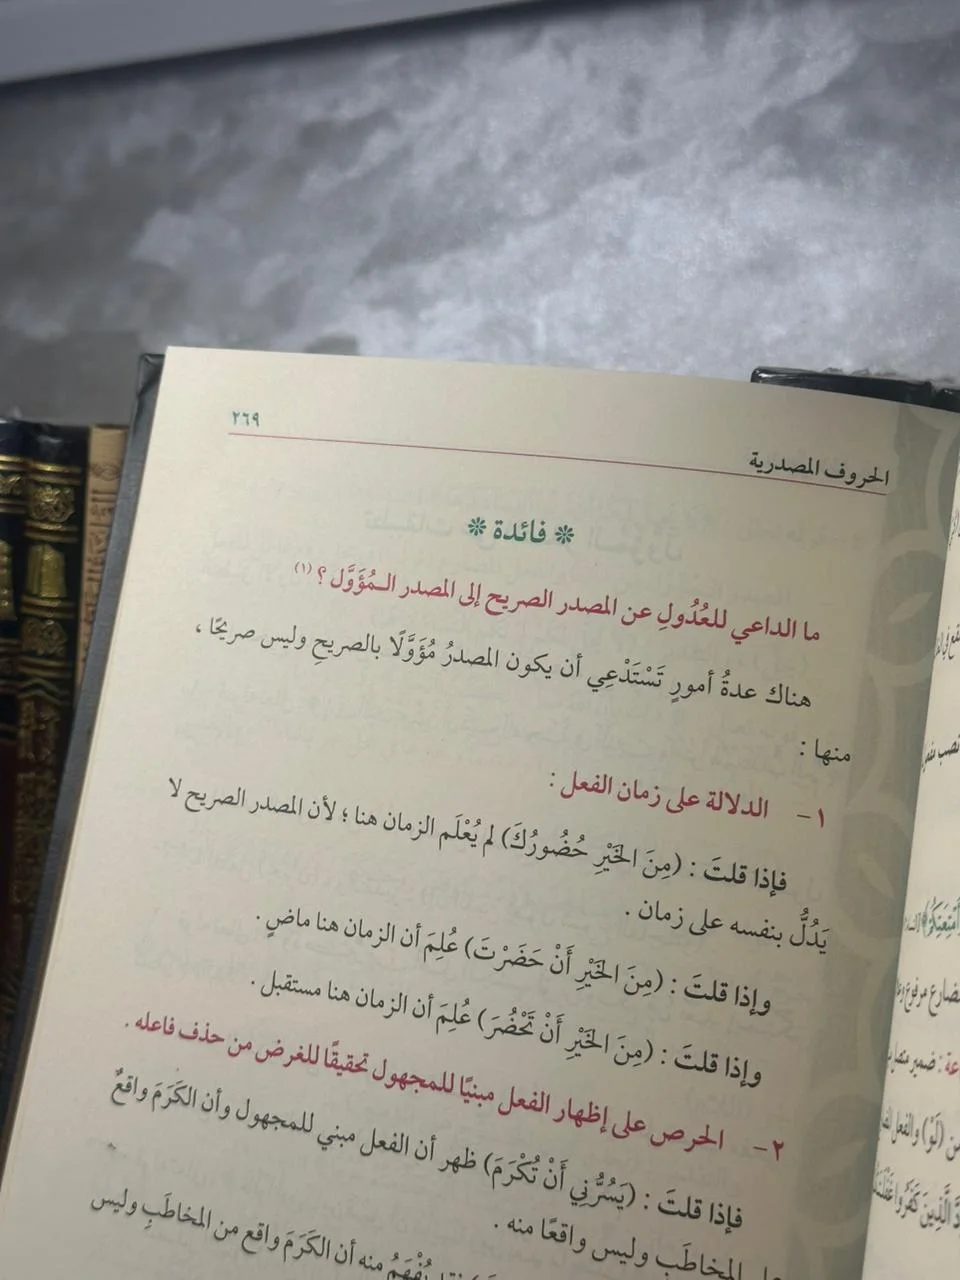 ٢٦٩
الحروف المصدرية
❊ فائدة ❊
ما الداعي للعُدُولِ عن المصدر الصريح إلى المصدر الـمُؤَوَّل ؟ (١)
هناك عدةُ أمورٍ تَسْتَدْعِي أن يكون المصدرُ مُؤَوَّلًا بالصريحِ وليس صريحًا ،
منها :
١- الدلالة على زمان الفعل :
فإذا قلتَ : (مِنَ الخَيْرِ حُضُورُكَ) لم يُعْلَم الزمان هنا ؛ لأن المصدر الصريح لا
يَدُلُّ بنفسه على زمان .
وإذا قلتَ : (مِنَ الخَيْرِ أَنْ حَضَرْتَ) عُلِمَ أن الزمان هنا ماضٍ .
وإذا قلتَ : (مِنَ الخَيْرِ أَنْ تَحْضُرَ) عُلِمَ أن الزمان هنا مستقبل .
٢- الحرص على إظهار الفعل مبنيًا للمجهول تحقيقًا للغرض من حذف فاعله .
فإذا قلتَ : (يَسُرُّنِي أَنْ تُكْرَمَ) ظهر أن الفعل مبني للمجهول وأن الكَرَمَ واقعٌ
على المخاطَب وليس واقعًا منه .
يُفْهَمُ منه أن الكَرَمَ واقع من المخاطَبِ وليس